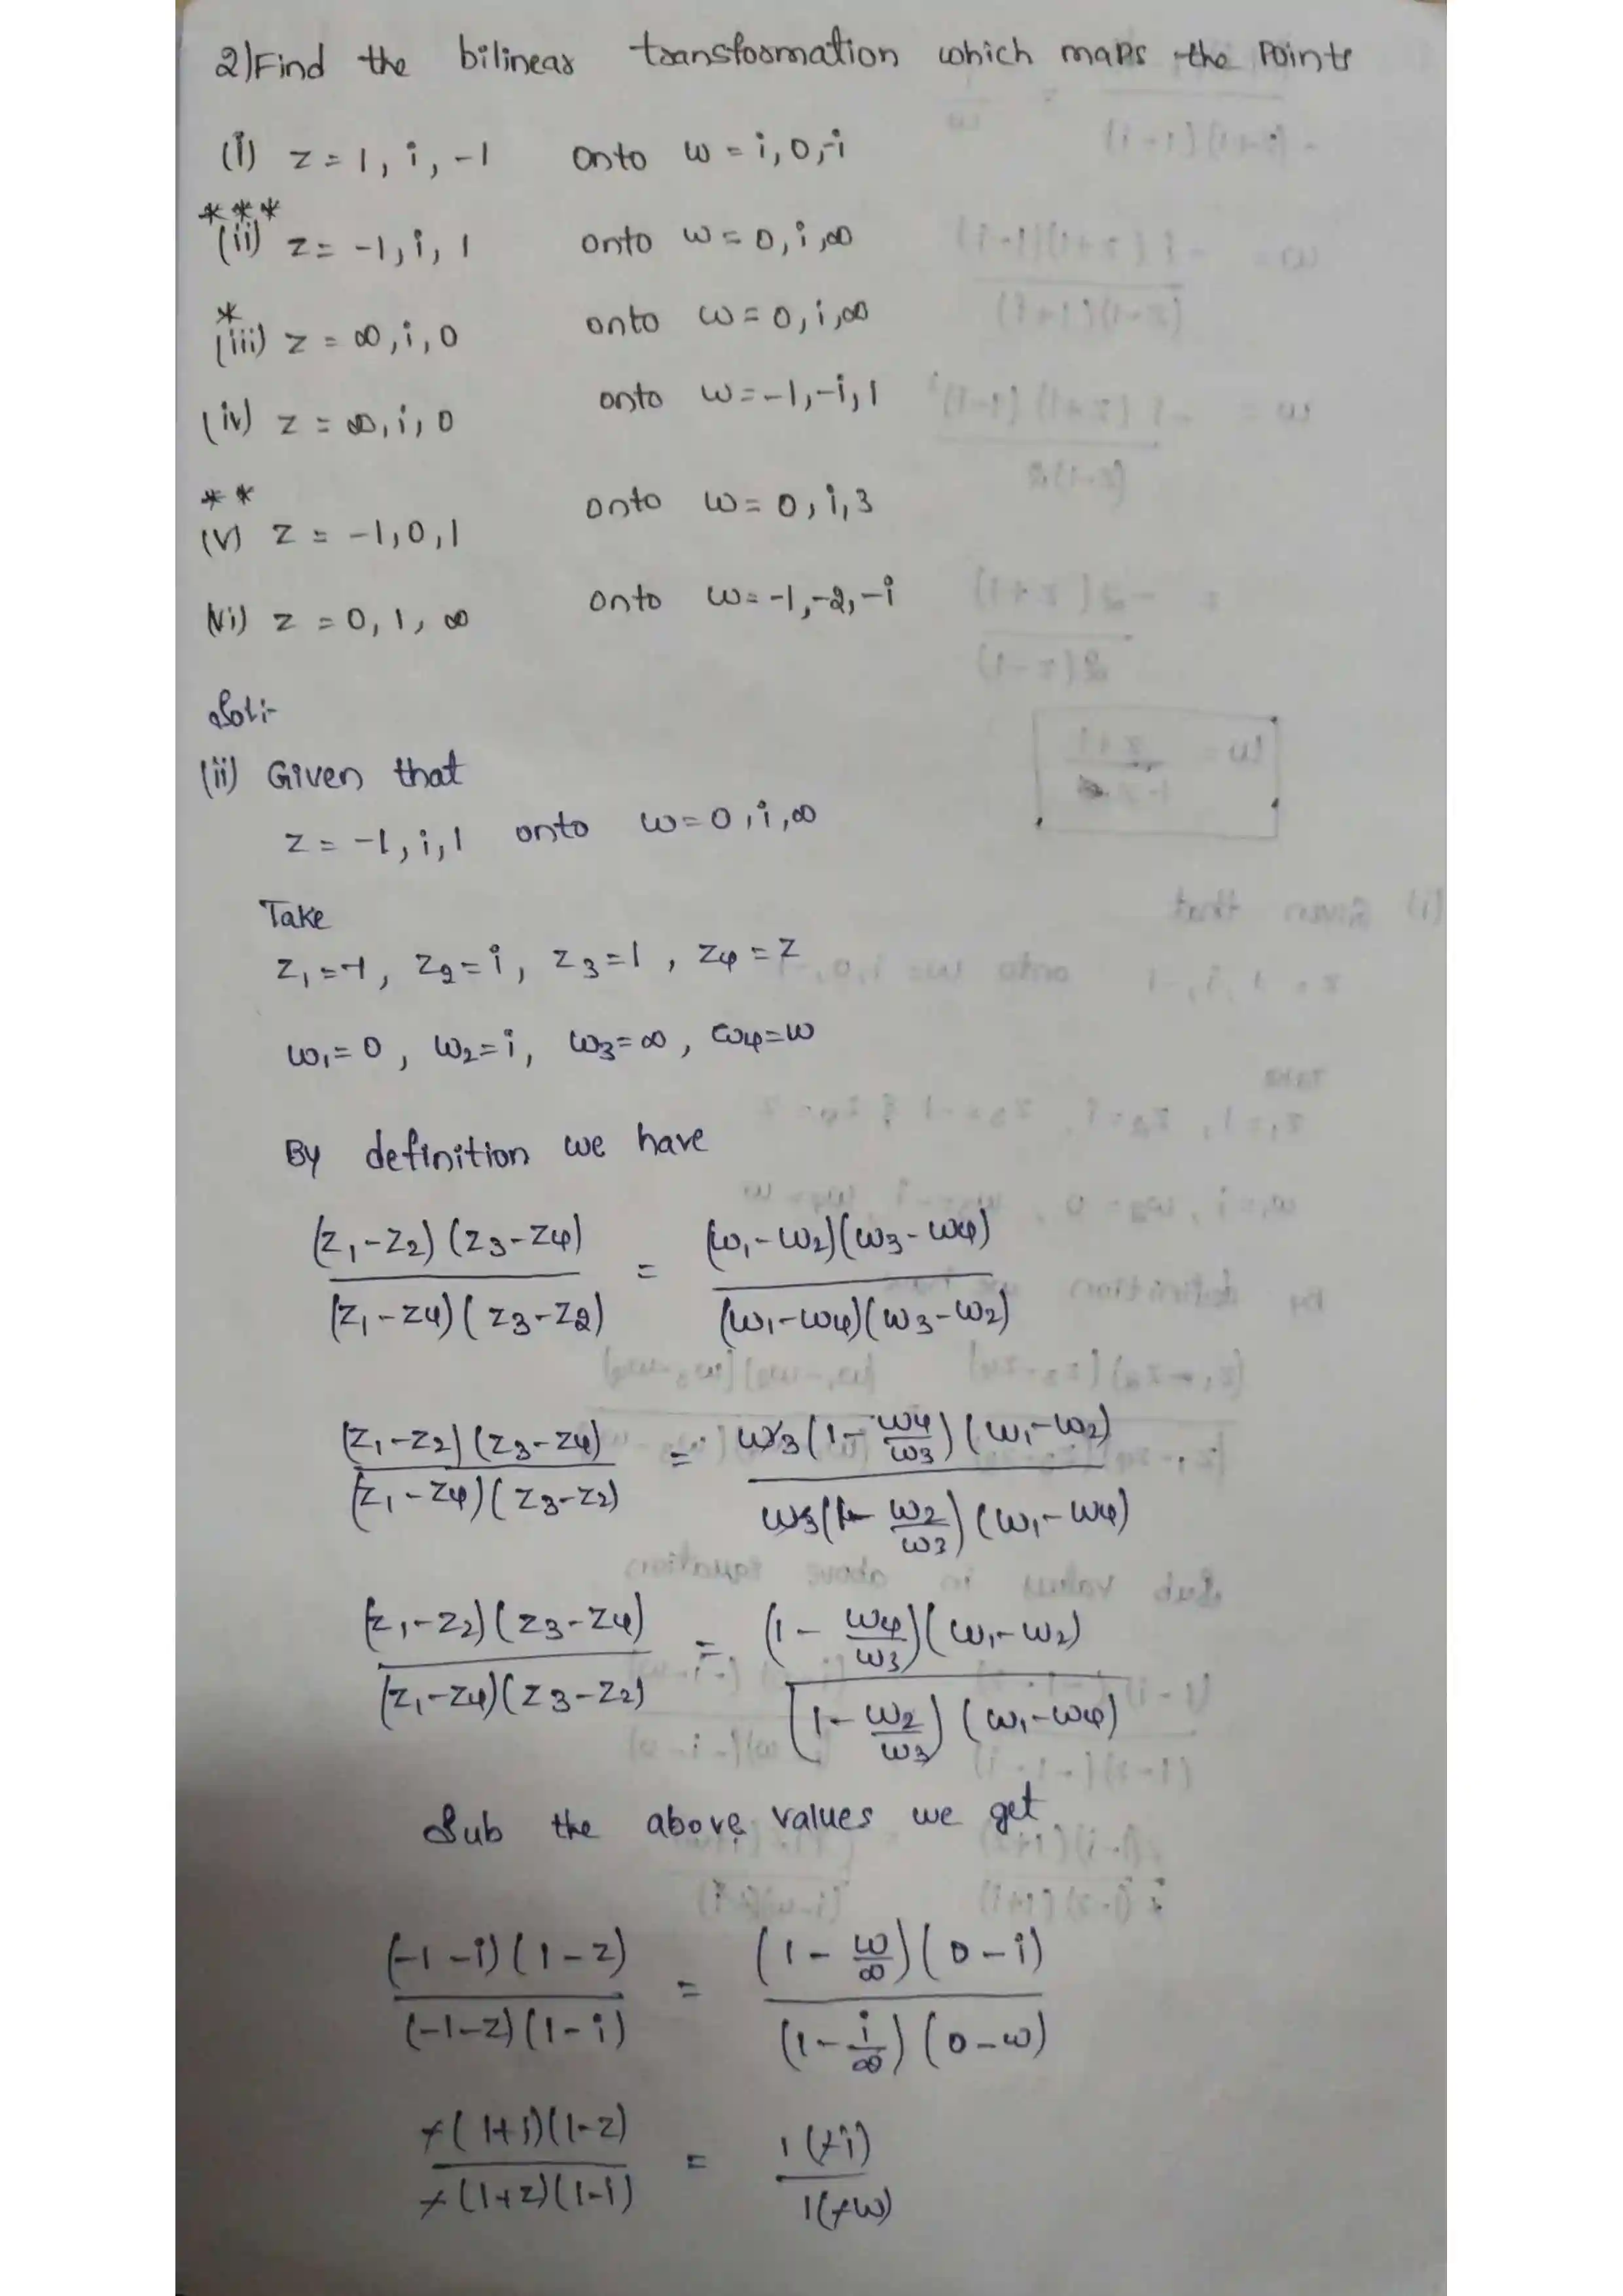 2) Find the bilinear transformation which maps the points
(i) z = 1, i, -1 onto w = i, 0, -i
***
(ii) z = -1, i, 1 onto w = 0, i, ∞
*
(iii) z = ∞, i, 0 onto w = 0, i, ∞
(iv) z = ∞, i, 0 onto w = -1, -i, 1
**
(v) z = -1, 0, 1 onto w = 0, i, 3
(vi) z = 0, 1, ∞ onto w = -1, -2, -i
Sol:-
(ii) Given that
z = -1, i, 1 onto w = 0, i, ∞
Take
z₁ = -1, z₂ = i, z₃ = 1, z₄ = z
w₁ = 0, w₂ = i, w₃ = ∞, w₄ = w
By definition we have
(z₁-z₂)(z₃-z₄) / (z₁-z₄)(z₃-z₂) = (w₁-w₂)(w₃-w₄) / (w₁-w₄)(w₃-w₂)
(z₁-z₂)(z₃-z₄) / (z₁-z₄)(z₃-z₂) = w₃(1 - w₄/w₃)(w₁-w₂) / w₃(1 - w₂/w₃)(w₁-w₄)
(z₁-z₂)(z₃-z₄) / (z₁-z₄)(z₃-z₂) = (1 - w₄/w₃)(w₁-w₂) / (1 - w₂/w₃)(w₁-w₄)
Sub the above values we get
(-1-i)(1-z) / (-1-z)(1-i) = (1 - w/∞)(0-i) / (1 - i/∞)(0-w)
-(1+i)(1-z) / -(1+z)(1-i) = 1(-i) / 1(-w)